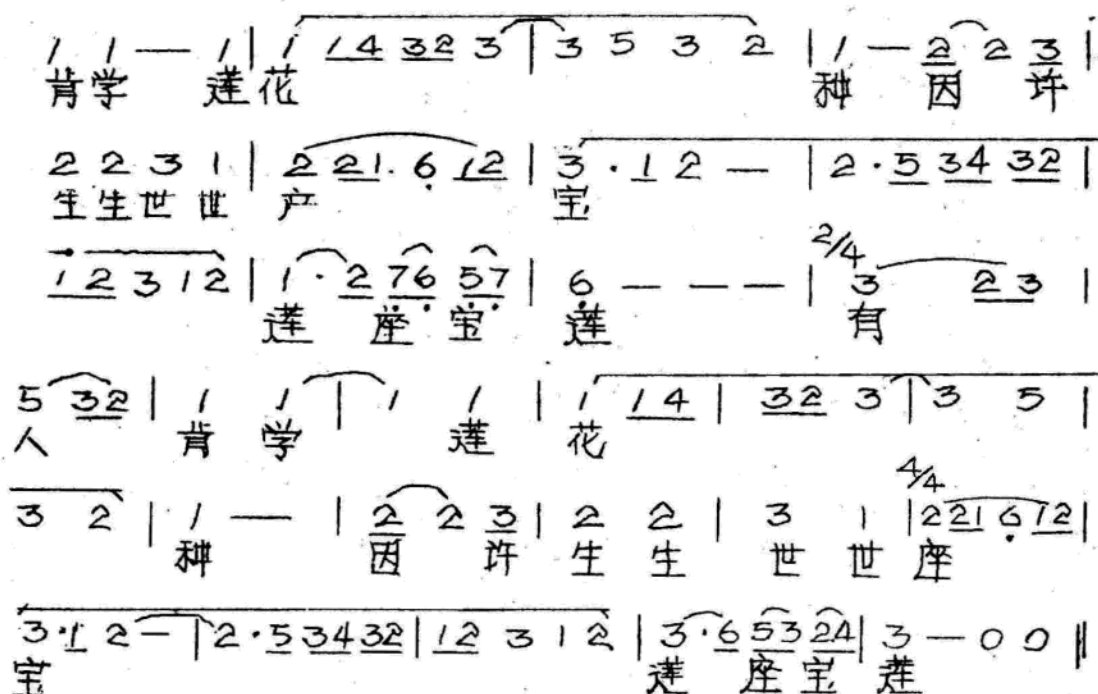 1 1 — 1 | 1 14 32 3 | 3 5 3 2 | 1 — 2 2 3 |
肯学 莲花 种 因 许
2 2 3 1 | 2 21. 6 12 | 3 · 1 2 — | 2 · 5 34 32 |
生生世世 产 宝
12 3 12 | 1 · 2 76 57 | 6 — — — | 2/4 3 23 |
莲 座 宝 莲 有
5 32 | 1 1 | 1 1 | 1 14 | 32 3 | 3 5 |
人 肯 学 莲 花
3 2 | 1 — | 2 2 3 | 2 2 | 3 1 | 4/4 2 21 6 12 |
种 因 许 生 生 世 世 座
3 · 1 2 — | 2 · 5 34 32 | 12 3 1 2 | 3 · 6 53 24 | 3 — 0 0 ||
宝 莲 座 宝 莲